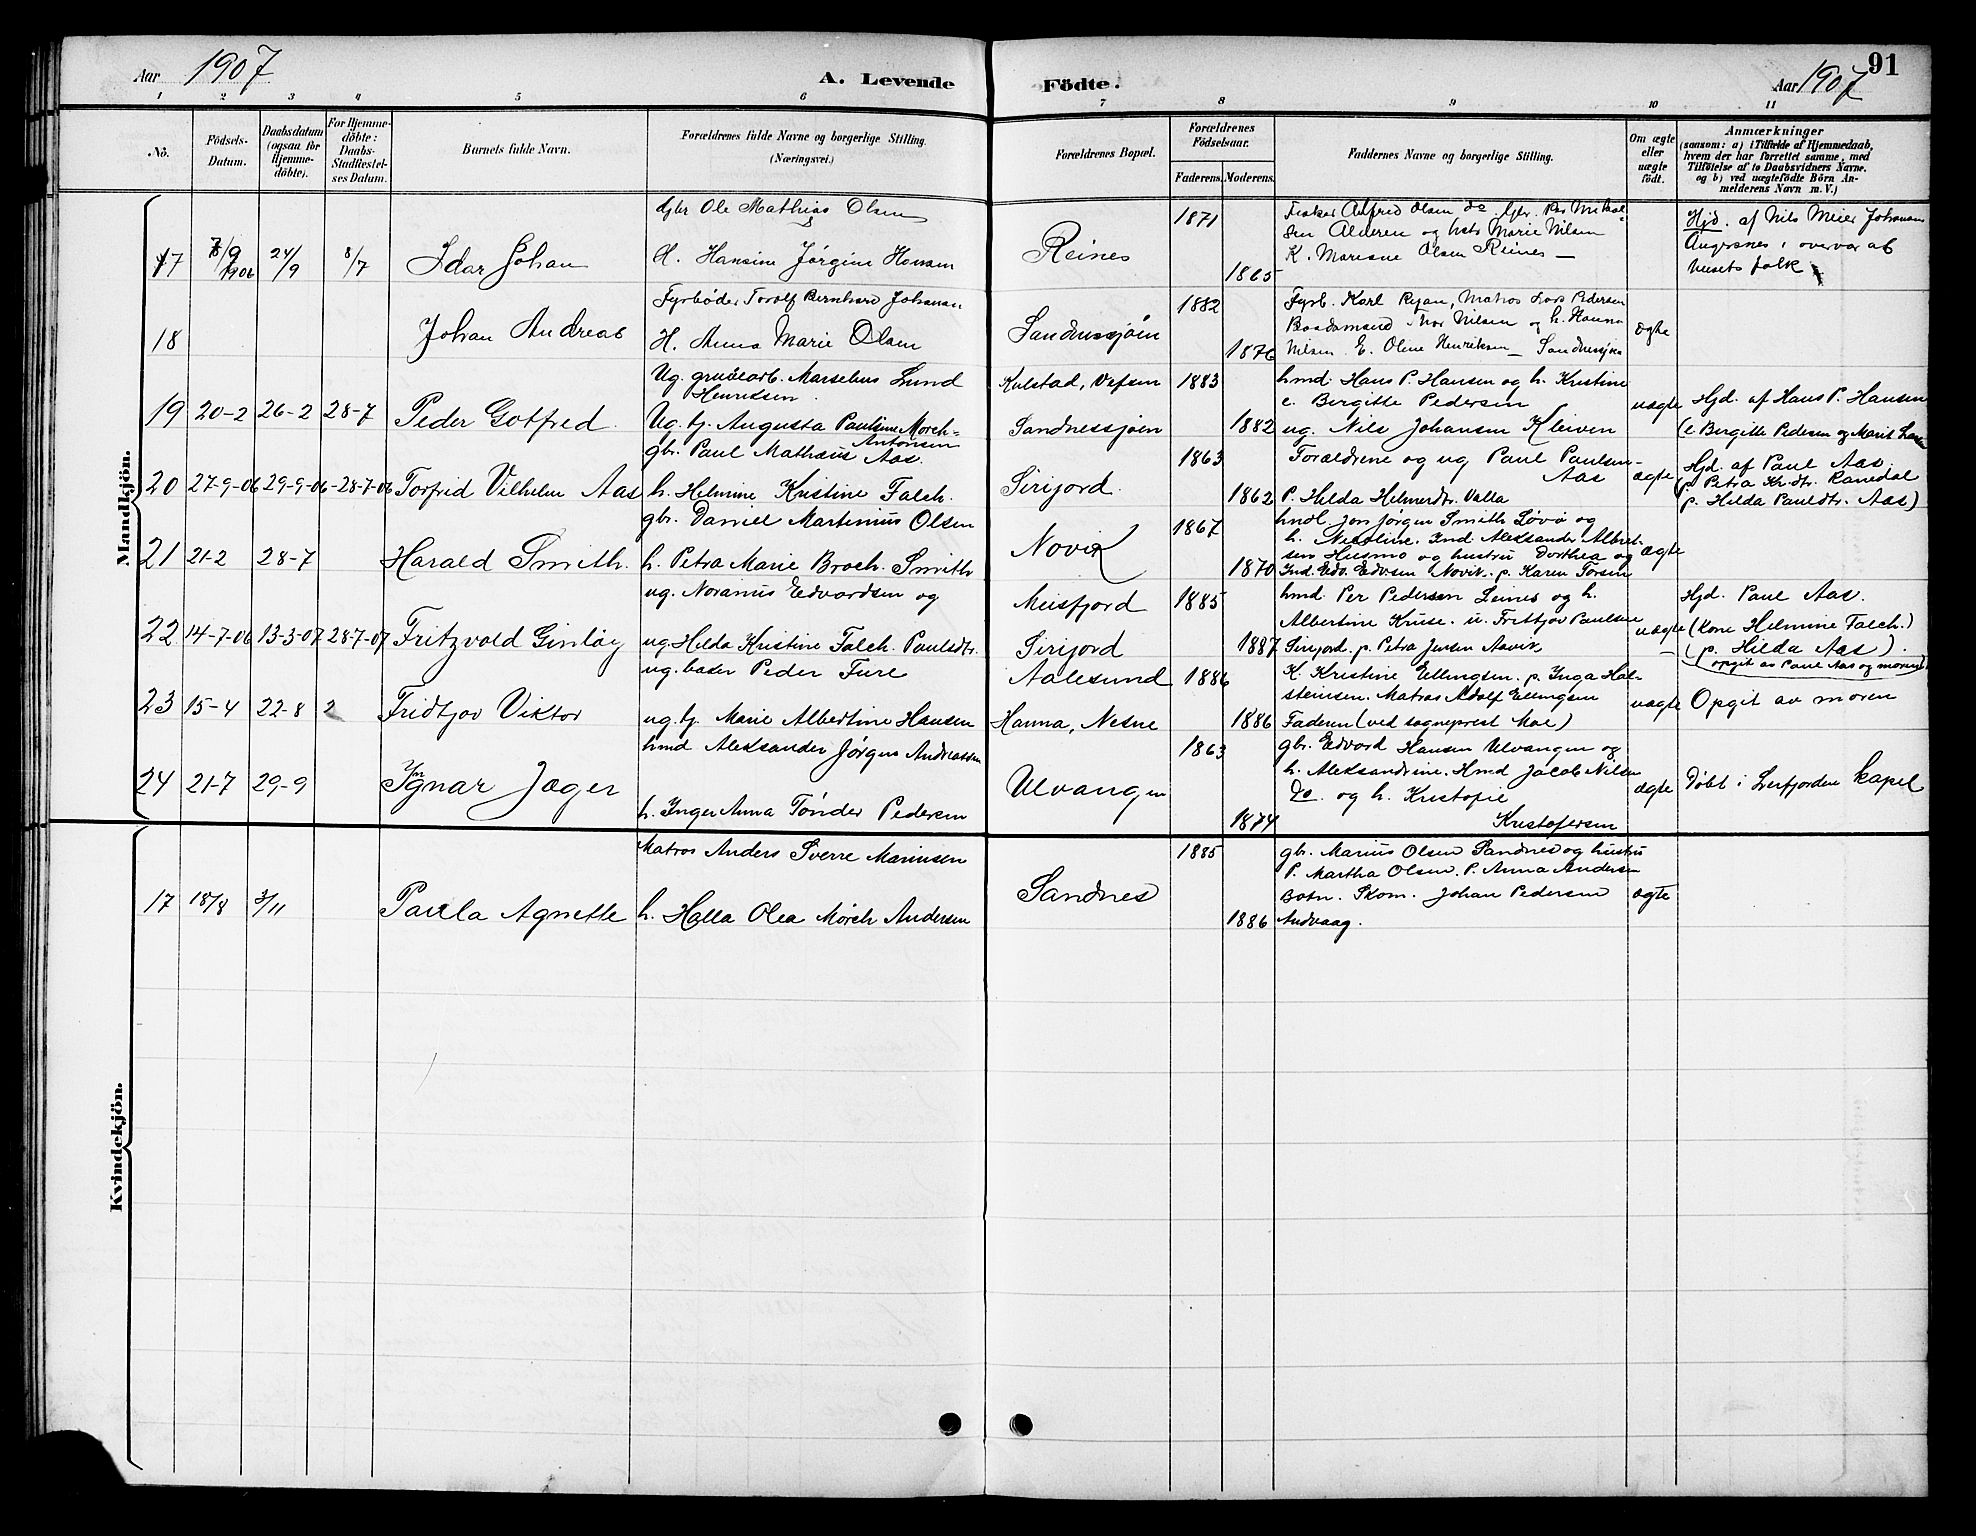 Aar 1907
A. Levende
Födte.
Aar 1907
91
1 2 3 4 5 6 7 8 9 10 11
No.
Födsels-Datum.
Daabsdatum (ogsaa for Hjemme-döbte).
For Hjemme-döbte: Daabs-Stadfæstel-ses Datum.
Barnets fulde Navn.
Forældrenes fulde Navne og borgerlige Stilling.
(Næringsvei.)
Forældrenes Bopæl.
Forældrenes Födselsaar.
Faderens. Moderens.
Faddernes Navne og borgerlige Stilling.
Om ægte eller uægte födt.
Anmærkninger
(saasom: a) i Tilfælde af Hjemmedaab,
hvem der har forrettet samme, med
Tilföielse af to Daabsvidners Navne.
og b) ved uægtefödte Börn An-
melderens Navn m. V.)
Mandkjön.
Gbr Ole Mathias Olsen
17 24/9 8/7 Idar Johan
H. Hansine Jørgine Hansen
Reines
1871
1865
Fisker Alfred Olsen do Gbr. Per Mikal-
sen Alderen og hstr Marie Nilsen
K. Mariane Olsen Reines —
Hjd. af Nils Meier Johansen
Angersnes i overvær af
husets folk
Fyrbøder Torolf Bernhard Johansen
18 Johan Andreas
H. Anna Marie Olsen
Sandnessjøen
1882
1876
Fyrb. Karl Ryan, Matros Lars Pedersen
Baadsmand Thor Nilsen og h. Hanna
Nilsen. E. Oline Henriksen — Sandnessjøen
ægte
Ug. grubearb. Marselius Lund
Henriksen.
19 20-2 26-2 28-7 Peder Gotfred.
Ug. tj. Augusta Pauline Mørch-
Antonsen
Kulstad, Vefsen
Sandnessjøen
1883
1882
hmd. Hans P. Hansen og h. Kristine
e. Bergitte Pedersen
ug. Nils Johansen Kleiven
uægte
Hjd. af Hans P. Hansen
(e. Bergitte Pedersen og Marit Larsen
gbr. Paul Mathæus Aas.
20 27-9-06 29-9-06 -28-7-06 Torfrid Vilhelm Aas
h. Helmine Kristine Falch.
Sirijord.
1863
1862
Forældrene og ug Paul Paulsen-
Aas
P. Hilda Helmerdtr. Valla
ægte
Hjd. af Paul Aas
(p. Petra Kr.dtr. Ranedal
p. Hilda Pauldtr. Aas)
gbr. Daniel Martinius Olsen
21 21-2 28-7 Harald Smith.
h. Petra Marie Broch. Smith
Novik
1867
1870
hndl. Jon Jørgen Smith Løvø og
h. Nicoline. Ind. Aleksander Albret-
sen Husmo og hustru Dorthea og
Ind. Edv. Edvsen Novik. p. Karen Torsen
ægte
ug. Noranus Edvardsen og
22 14-7-06 13-3-07 28-7-07 Fritzvold Ginløg
ug. Hilda Kristine Falch. Paulsdtr.
Meisfjord
Sirijord
1885
1887
hmd. Per Pedersen Leines og h.
Albertine Kruse. u. Fritjov Paulsen
Sirijord. p. Petra Jensen Aavik
uægte
Hjd. Paul Aas.
(kone Helmine Falch.)
(p. Hilda Aas).
(opgit av Paul Aas og moren)
ug. baker Peder Fure
23 15-4 22-8 2 Fridtjov Viktor
ug. tj. Marie Albertine Hansen
Aalesund
Hanna, Nesne
1886
1886
K. Kristine Ellingsen. p. Inga Hal-
steinsen. Matros Adolf Ellingsen
Faderen (ved sogneprest Moe)
uægte
Opgit av moren
hmd Aleksander Jørgen Andreassen
24 21-7 29-9 Ignar Jæger
h. Inger Anna Tønder Pedersen
Ulvangen
1863
1874
gbr. Edvard Hansen Ulvangen og
h. Aleksandrine. Hmd Jacob Nilsen
Do. og h. Kristofie
Kristofersen
ægte
Døbt i Leirfjorden kapel
Kvindekjön.
Matros Anders Sverre Marinsen
17 18/8 3/11 Paula Agnette
h. Halla Olea Mørch Andersen
Sandnes
1885
1886
gbr. Marius Olsen Sandnes og hustru
P. Martha Olsen. P. Anna Andersen
Botn. Skom. Johan Pedersen
Andvaag.
ægte